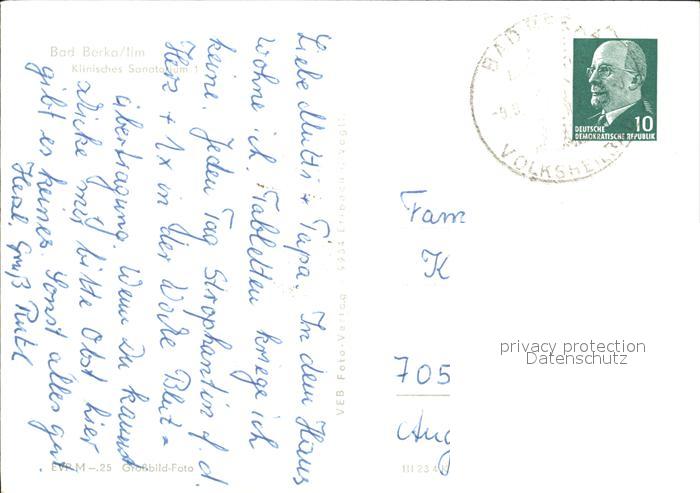 Bad Berka/Ilm
Klinisches Sanatorium
Liebe Mutti + Papa. In dem Haus
wohne ich. Tabletten kriege ich
keine. Jeden Tag Strophantin f. d.
Herz + 1x in der Woche Blut-
übertragung. Wenn Du kannst
schicke mir bitte Obst hier
gibt es keines. Sonst alles gut.
Herzl. Gruß
EVP M -.25 Großbild-Foto
VEB Foto-Verlag
BAD
VOLKSHEI
DEUTSCHE
DEMOKRATISCHE REPUBLIK
10
Fam
K
705
III 23 4
privacy protection
Datenschutz